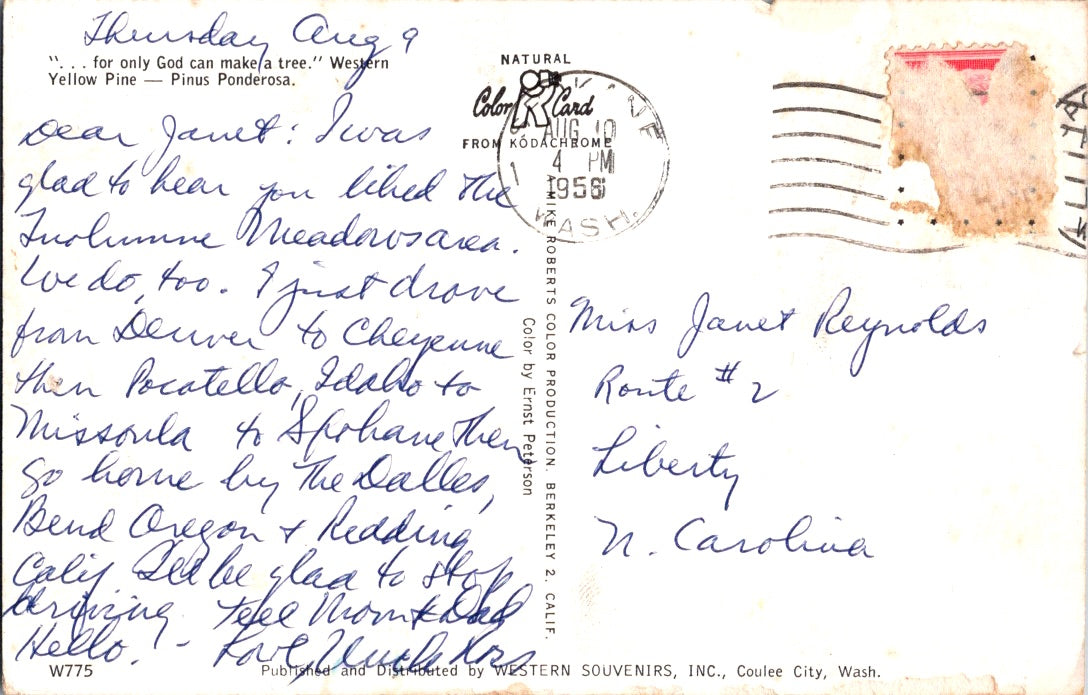 Thursday Aug 9
". . . for only God can make a tree." Western
Yellow Pine — Pinus Ponderosa.
Dear Janet: I was
glad to hear you liked the
Tuolumne Meadows area.
We do, too. I just drove
from Denver to Cheyenne
then Pocatello, Idaho to
Missoula to Spokane then
go home by The Dalles,
Bend Oregon + Redding
Calif. I'll be glad to stop
driving. Tell Mom & Dad
Hello. - Love, Uncle Ross
W775
NATURAL
Color Card
FROM KODACHROME
AUG 10
4 PM
1956
WASH.
A MIKE ROBERTS COLOR PRODUCTION. BERKELEY 2, CALIF.
Color by Ernst Peterson
Miss Janet Reynolds
Route #2
Liberty
N. Carolina
Published and Distributed by WESTERN SOUVENIRS, INC., Coulee City, Wash.